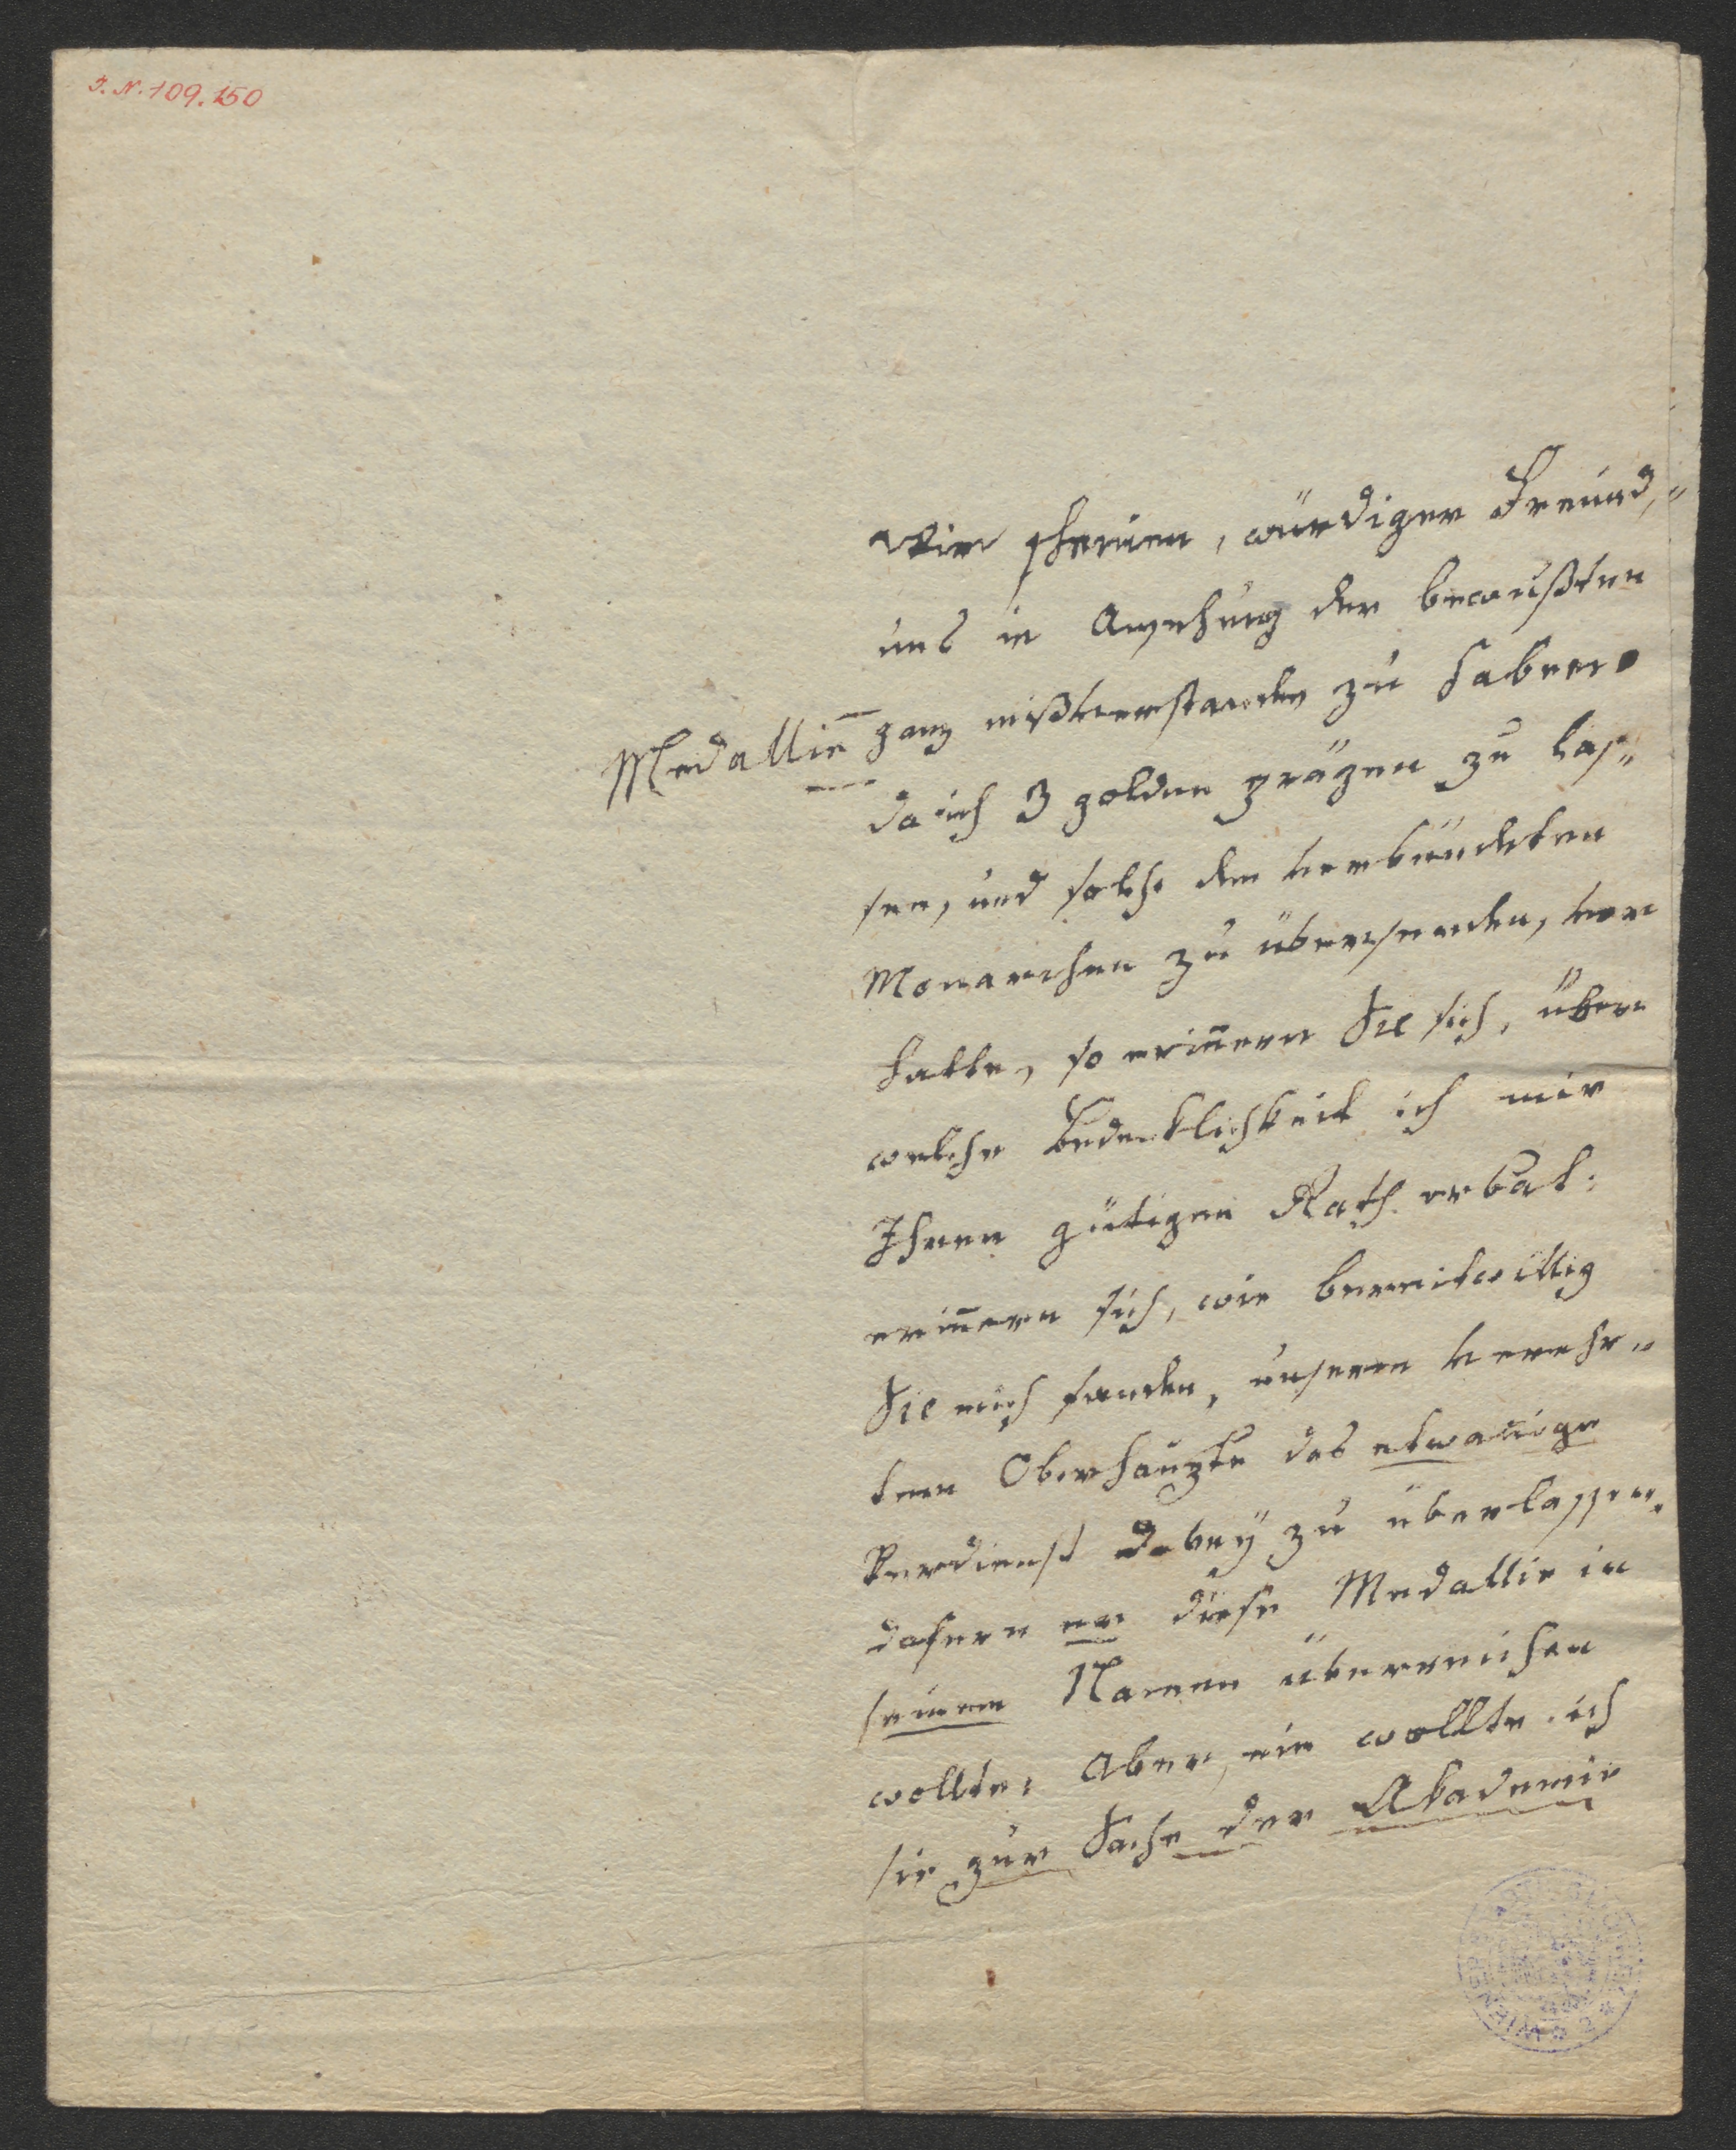 J. N. 109.150
Wir scheinen, würdiger Freund,
uns in Ansehung der bewußten
Medallie ganz mißverstanden zu haben.
da ich 3 goldne prägen zu las„
sen, und solche den verbündeten
Monarchen zu übersenden, vor
hatte, so erinnern Sie sich, über
welche Bedenklichkeit ich mir
Ihren gütigen Rath erbat:
erinnern sich, wie bereitwillig
Sie mich fanden, unserem verehr„
ten Oberhaupte das etwanige
Verdienst dabey zu überlassen,
dafern er diese Medallie in
seinem Namen überreichen
wollte: Aber, nie wollte ich
sie zur Sache der Akademie
WIEN